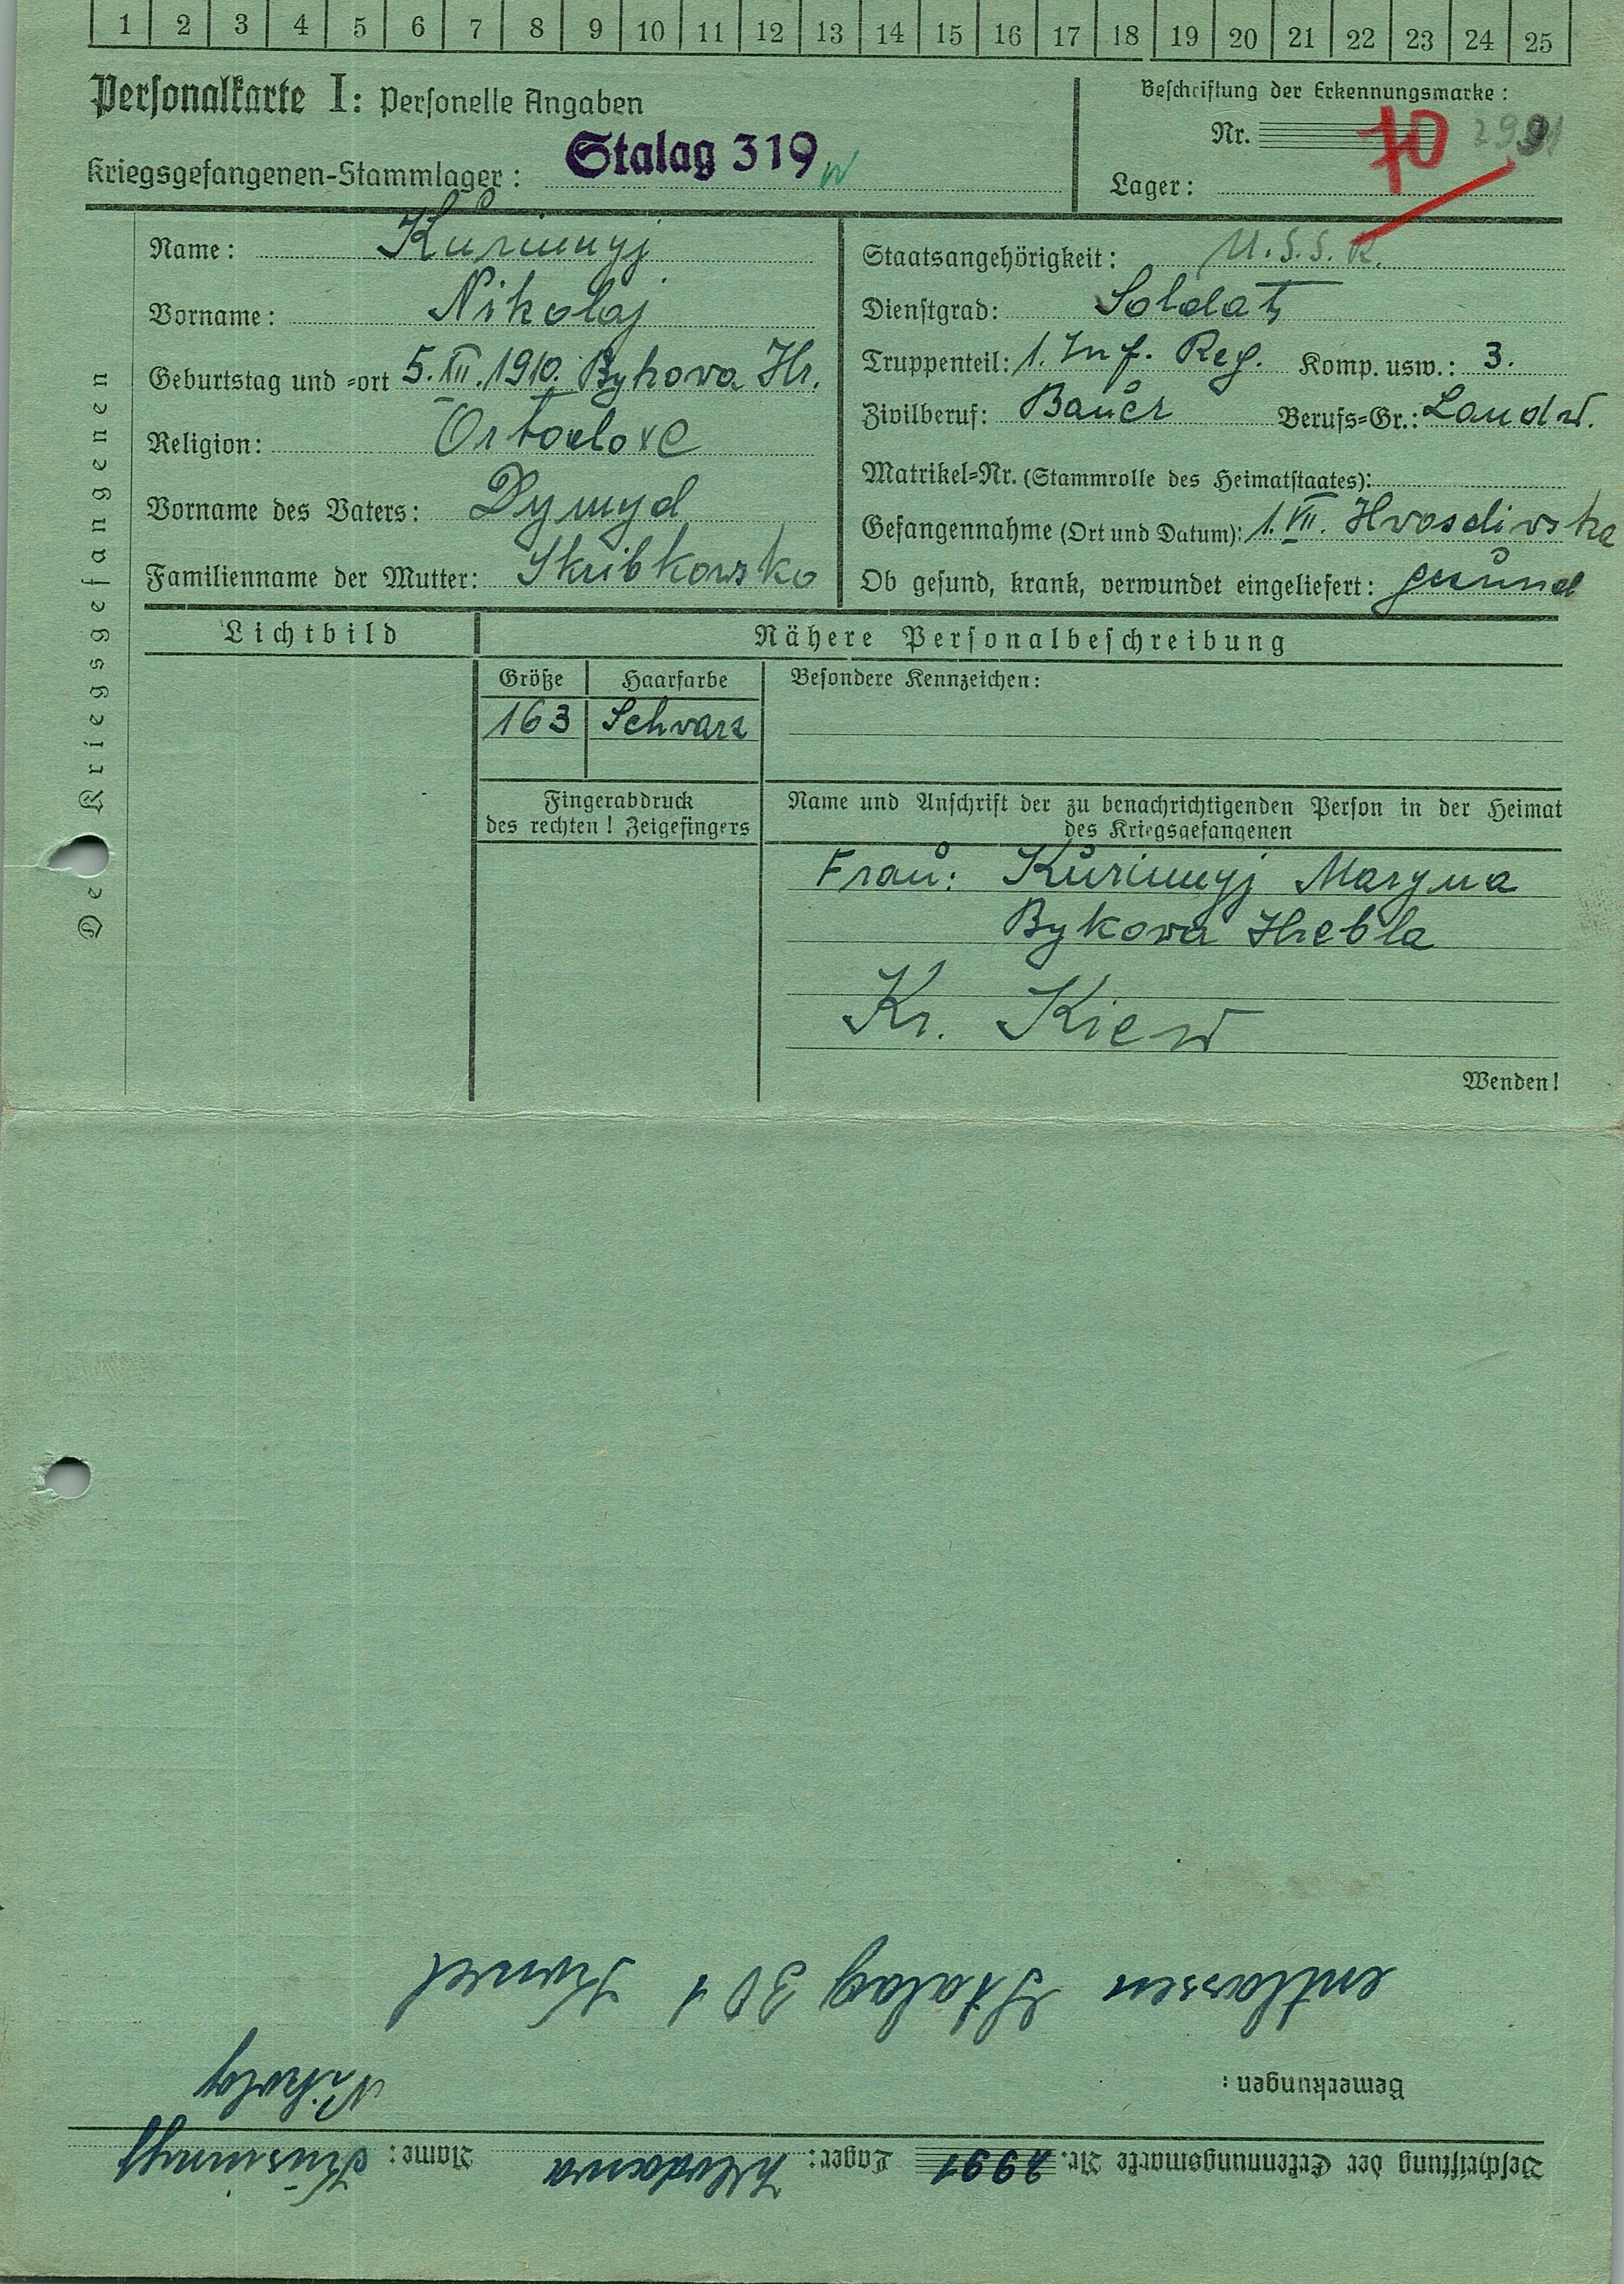 1 2 3 4 5 6 7 8 9 10 11 12 13 14 15 16 17 18 19 20 21 22 23 24 25
Personalkarte I: Personelle Angaben
Kriegsgefangenen-Stammlager: Stalag 319
Beschriftung der Erkennungsmarke:
Nr. 2991
70
Lager:
Des Kriegsgefangenen
Name: Kŭrimyj
Vorname: Nikolaj
Geburtstag und =ort 5.XII.1910. Bykova Hr.
Religion: Ortodoxe
Vorname des Vaters: Dymyd
Familienname der Mutter: Skribkowsko
Staatsangehörigkeit: U.S.S.R.
Dienstgrad: Soldat
Truppenteil: 1. Inf. Reg. Komp. usw.: 3.
Zivilberuf: Baŭer Berufs=Gr.: Landw.
Matrikel=Nr. (Stammrolle des Heimatstaates):
Gefangennahme (Ort und Datum): 1.VII. Hvosdivska
Ob gesund, krank, verwundet eingeliefert: gesŭnd
Lichtbild
Nähere Personalbeschreibung
Größe Haarfarbe
163 Schvarz
Besondere Kennzeichen:
Fingerabdruck
des rechten! Zeigefingers
Name und Anschrift der zu benachrichtigenden Person in der Heimat
des Kriegsgefangenen
Fraŭ: Kŭrimyj Maryna
Bykova Hrebla
Kr. Kiew
Wenden!
Beschriftung der Erkennungsmarke Nr. 2991 Lager: Wlodawa Name: Kŭrimyj
Nikolaj
Bemerkungen:
entlassen Stalag 301 Kowel